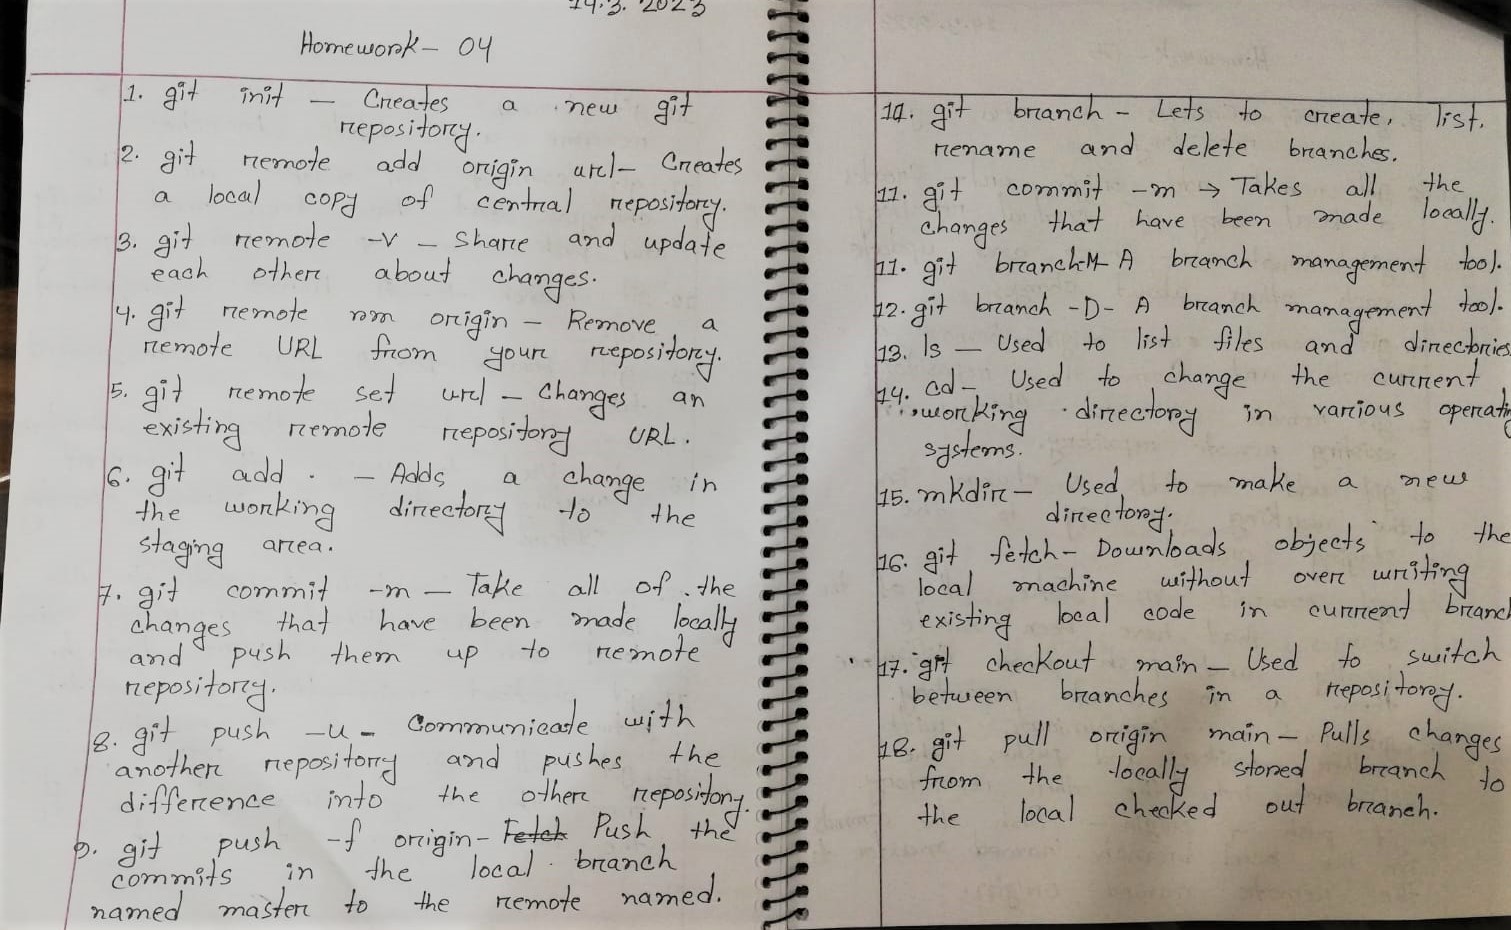 14.3.2023
Homework- 04
1. git init — Creates a new git
repository.
2. git remote add origin url- Creates
a local copy of central repository.
3. git remote -v - Share and update
each other about changes.
4. git remote rm origin - Remove a
remote URL from your repository.
5. git remote set url - Changes an
existing remote repository URL.
6. git add . - Adds a change in
the working directory to the
staging area.
7. git commit -m - Take all of the
changes that have been made locally
and push them up to remote
repository.
8. git push -u - Communicate with
another repository and pushes the
difference into the other repository.
9. git push -f origin- Fetch Push the
commits in the local branch
named master to the remote named.
10. git branch - Lets to create, list,
rename and delete branches.
11. git commit -m → Takes all the
changes that have been made locally.
11. git branch-M- A branch management tool.
12. git branch -D- A branch management tool.
13. ls - Used to list files and directories
14. cd - Used to change the current
working directory in various operatin
systems.
15. mkdir - Used to make a new
directory.
16. git fetch- Downloads objects to the
local machine without over writing
existing local code in current branch
17. git checkout main - Used to switch
between branches in a repository.
18. git pull origin main - Pulls changes
from the locally stored branch to
the local checked out branch.